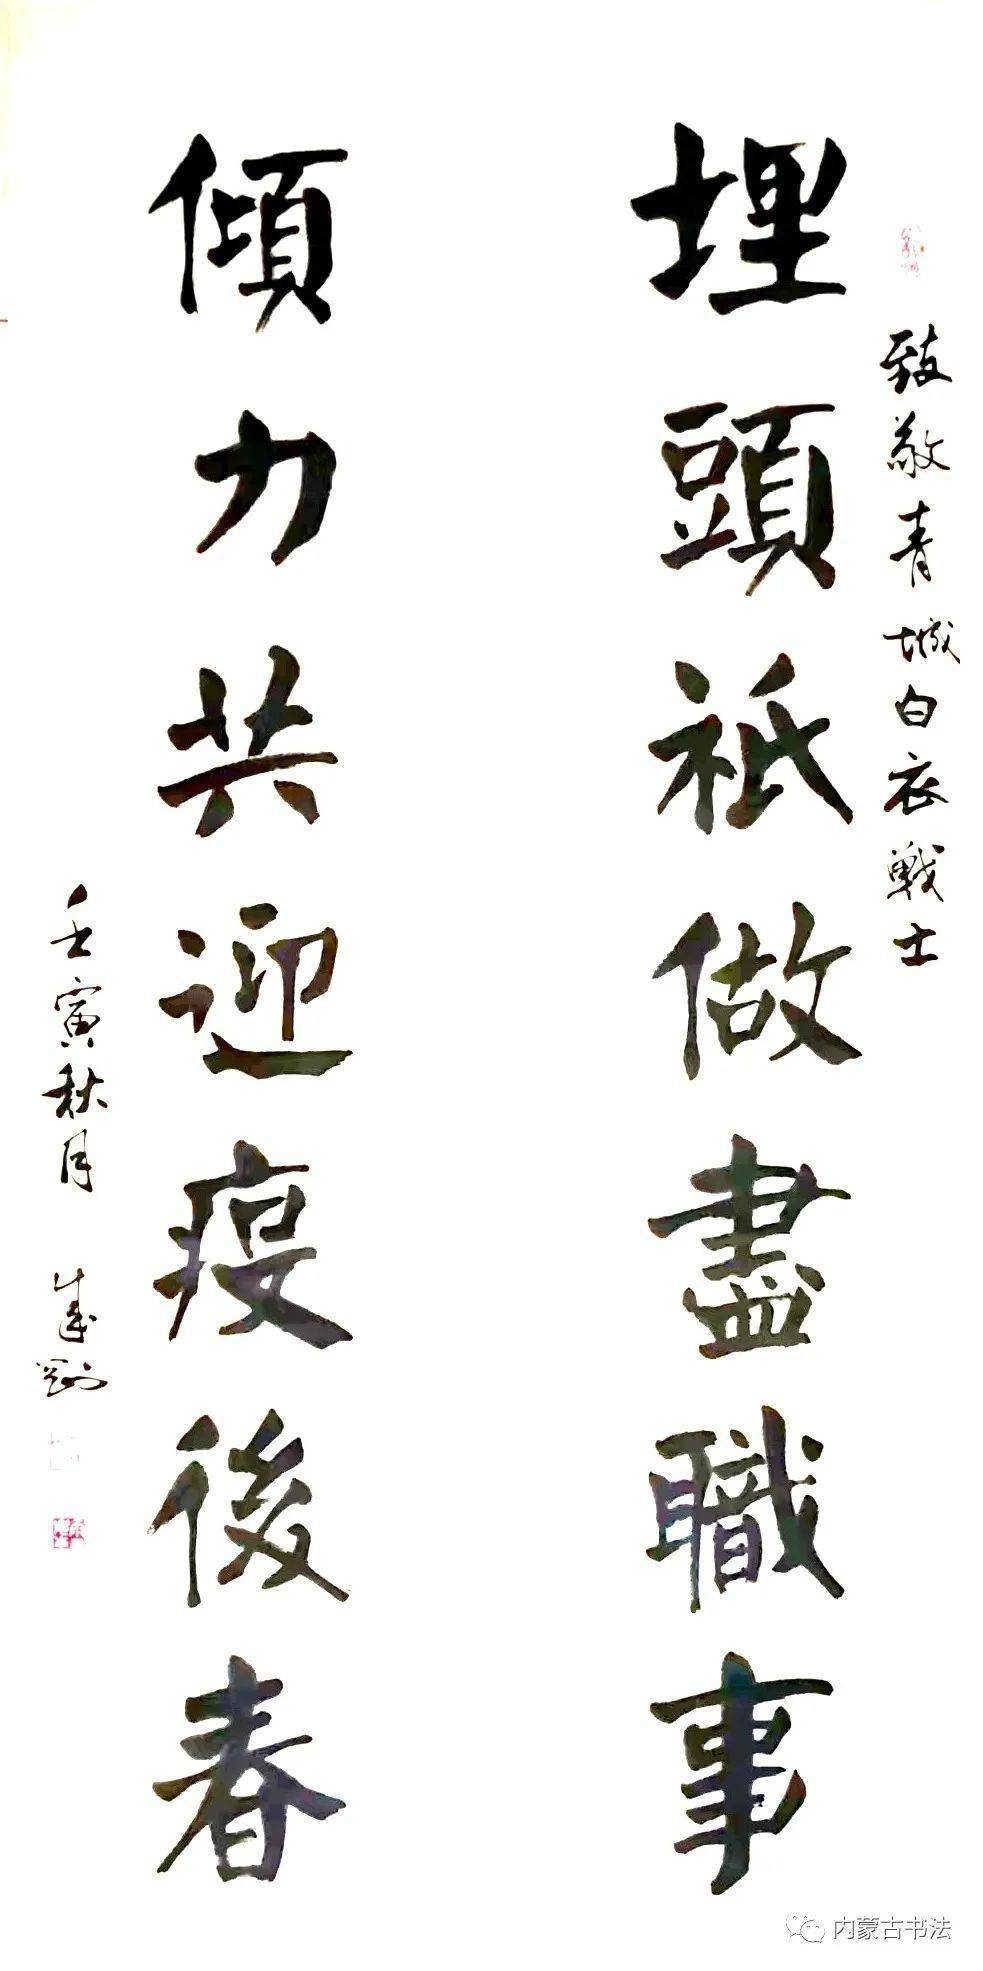 致敬青城白衣戰士
埋頭祇做盡職事
傾力共迎疫後春
壬寅秋月 成剛
内蒙古书法